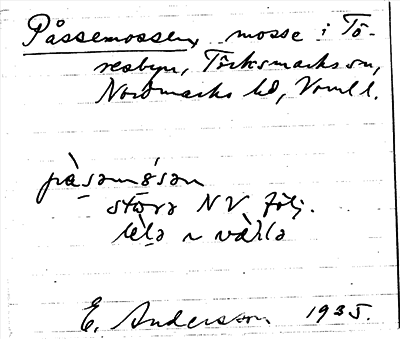 Påssemossen, mosse i Tö-
resbyn, Töcksmarks sn,
Nordmarks hd, Vrml l.
påsəmósən
störə NV följ.
lèlə n vàllə
E. Andersson 1935.